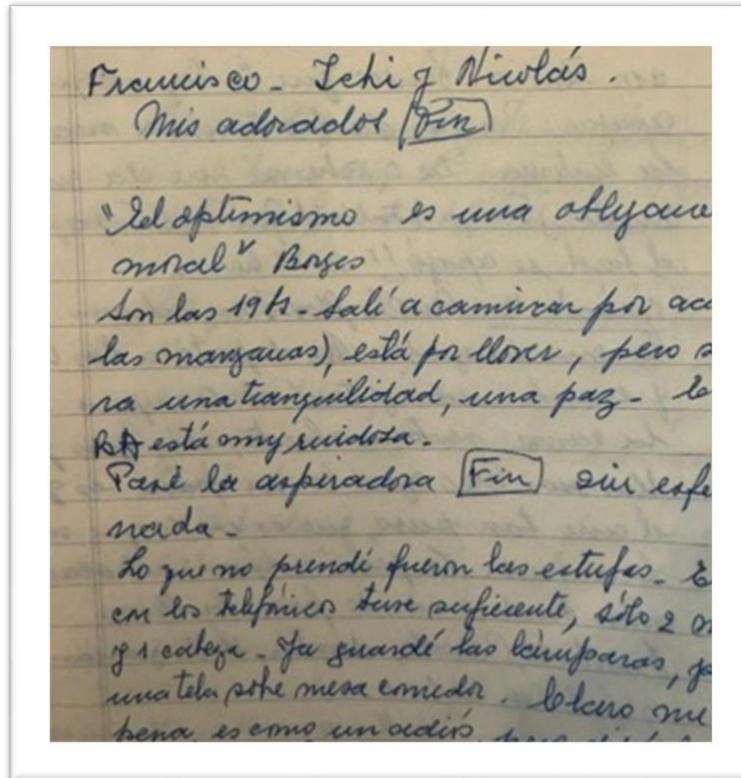 Francisco - Ichi y Nicolás.
Mis adorados Fin
"El optimismo es una obligació
moral" Borges
Son las 19 hs - Salí a caminar por ac
las manzanas), está por llover, pero s
ra una tranquilidad, una paz -
BA está muy ruidosa.
Pasé la aspiradora Fin sin espe
nada -
Lo que no prendí fueron las estufas -
con los telefónicos tuve suficiente, sólo 2
y 1 cabeza - Ya guardé las lámparas,
una tela sobre mesa comedor. Claro me
pena, es como un adiós